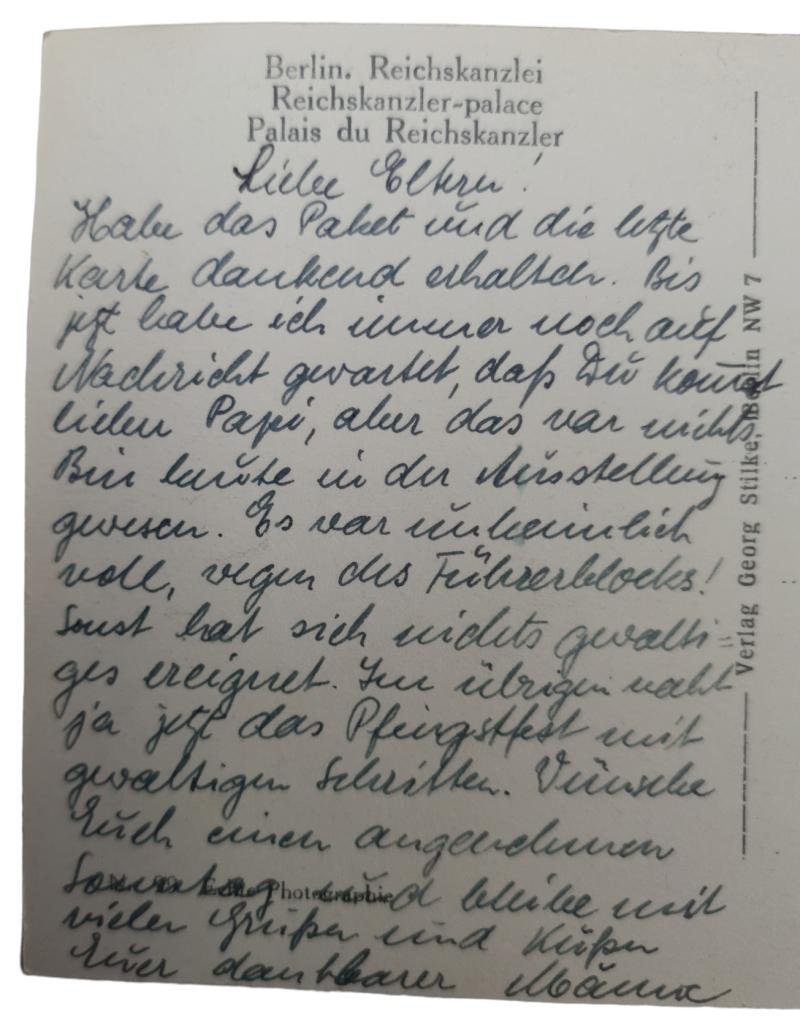 Berlin. Reichskanzlei
Reichskanzler-palace
Palais du Reichskanzler
Liebe Eltern!
Habe das Paket und die letzte
Karte dankend erhalten. Bis
jetzt habe ich immer noch auf
Nachricht gewartet, daß Du kommst
lieber Papi, aber das war nichts.
Bin heute in der Ausstellung
gewesen. Es war unheimlich
voll, wegen des Führerblocks!
Sonst hat sich nichts gewalti-
ges ereignet. Im übrigen naht
ja jetzt das Pfingstfest mit
gewaltigen Schritten. Wünsche
Euch einen angenehmen
Sonntag und bleibe mit
vielen Grüßen und Küßen
Euer dankbarer
Echte Photographie
Verlag Georg Stilke, Berlin NW 7